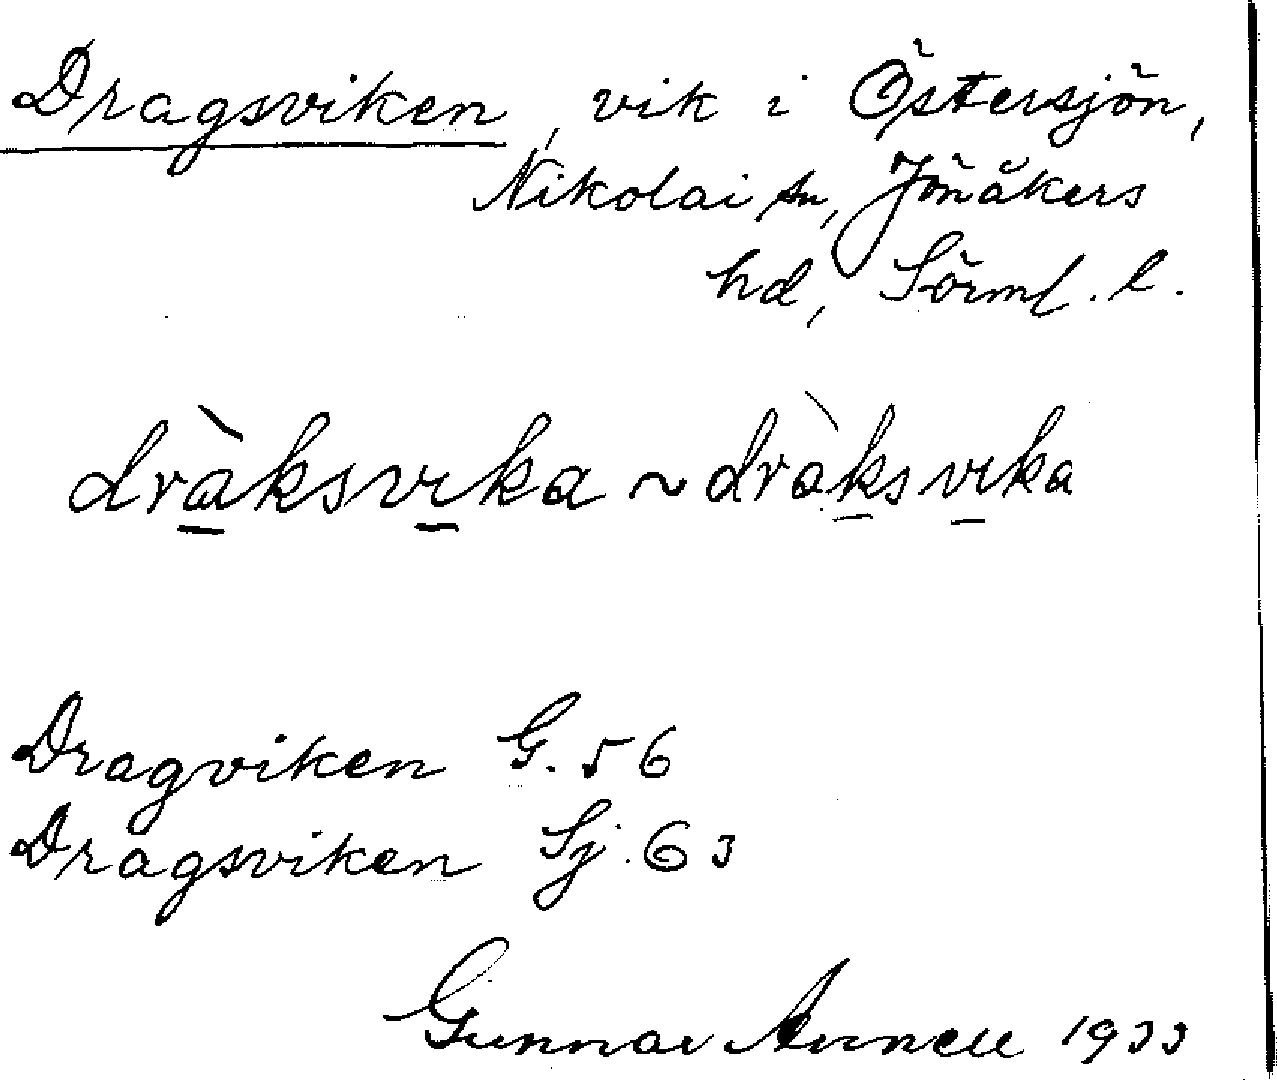 Dragsviken, vik i Östersjön,
Nikolai sn, Jönåkers
hd, Sörml. l.
dràksvika ~ dràksvika
Dragviken G. 56
Dragsviken Sj. 63
Gunnar Annell 1933